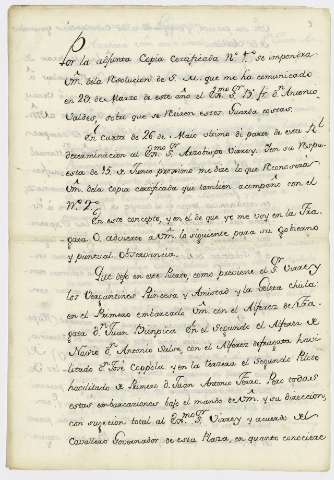 Por la adjunta Copia certificada N.º 1.º se impondra
Vm. dela Resolucion de S. M. que me ha comunicado
en 20 de Marzo de este año el Exmo. Sr. B.º Fr. Dn. Antonio
Valdes, sobre que se Retiren estos Guarda costas.
En Carta de 26 de Maio ultimo dí parte de esta Rl.
determinacion al Exmo. Sr. Arzobispo Virrey. I en su Respu
esta de 15 de Junio proximo me dice lo que Reconocera
Vm. dela copia certificada que tambien acompaño con el
N.º 2.º
En este concepto, y en el de que yo me voy en la Fra
gata O, advierto a Vm. lo siguiente para su Gobierno
y puntual observancia.
Que dejo en este Puerto, como previene el Sr. Virrey
los Vergantines Princesa y Amistad y la Golera chula:
en el Primero embarcado Vm. con el Alferez de Fra
gata Dn. Juan En el Segundo el Alferez de
Navio Dn. Antonio con el Alferez defragata havi
litado Dn. José y en la tercera el Segundo Piloto
havilitado de Primero Dn. Juan Antonio Pero todas
estas embarcaciones bajo el mando de Vm. y su direccion,
con sugecion total al Exmo. Sr. Virrey y acuerdo del
Cavallero Governador de esta Plaza, en quanto conociere